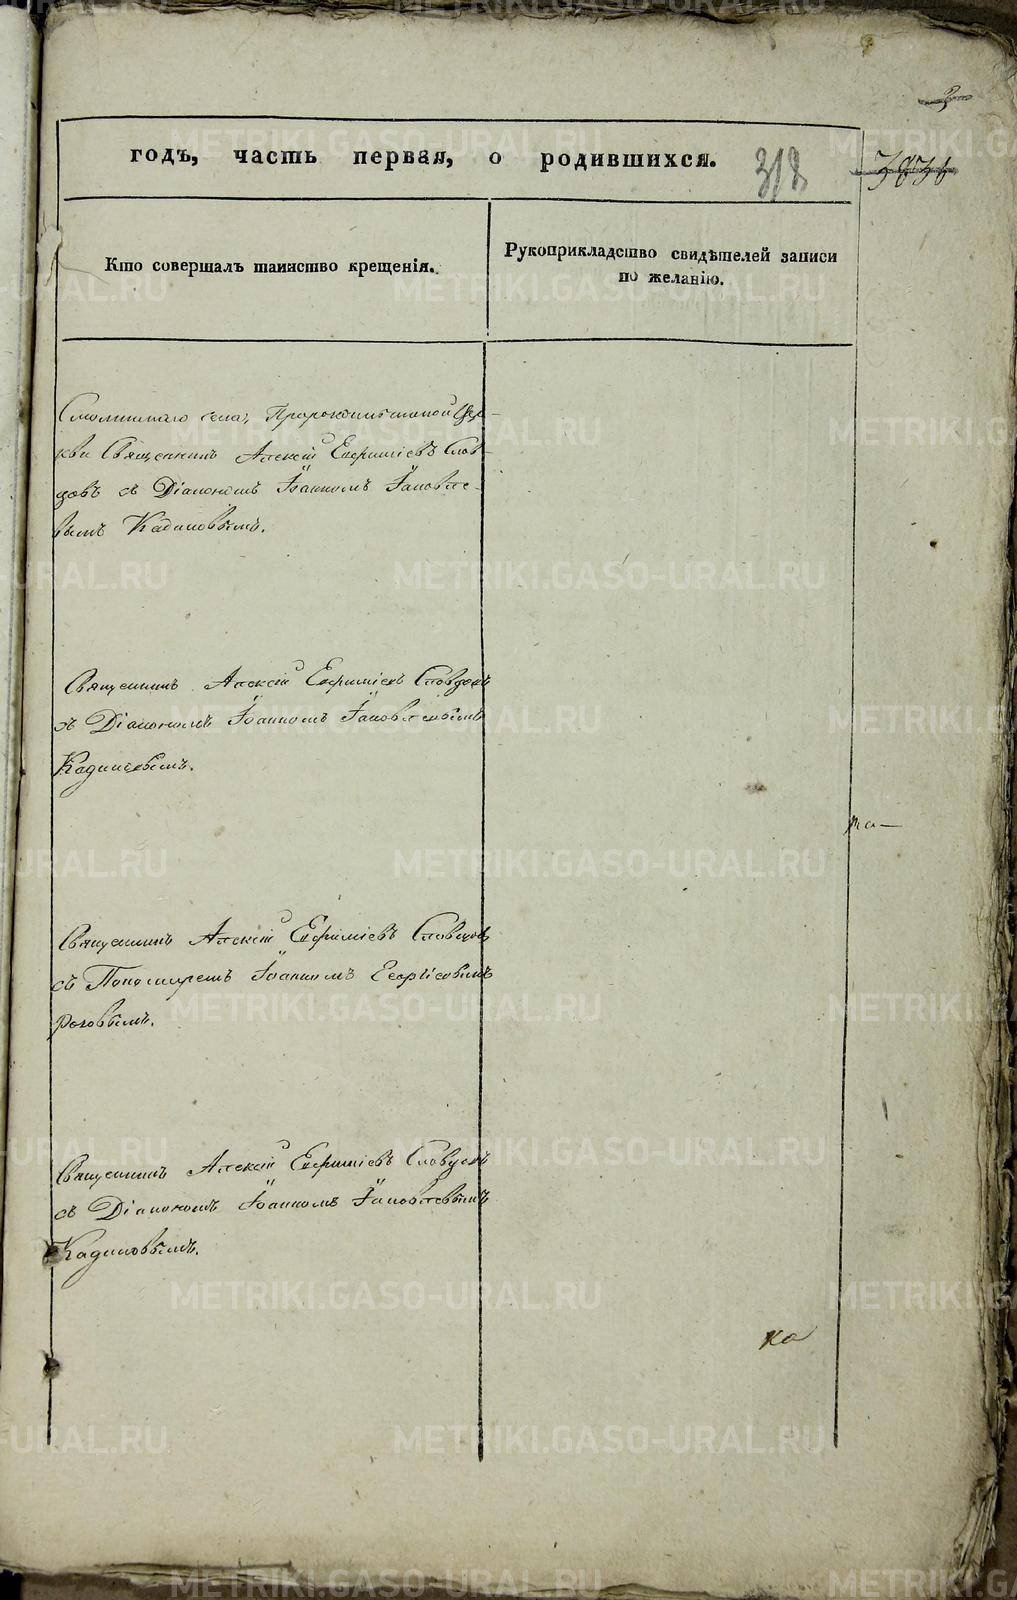 3
годъ, часть первая, о родившихся.
318
Кто совершалъ таинство крещенія.
Рукоприкладство свидѣтелей записи
по желанію.
села, Пророкоильинской Цер-
кви Священникъ Алексій Евфиміевъ Слов-
цовъ съ Діакономъ Іоанномъ Іаковле-
вымъ Кадиковымъ.
Священникъ Алексій Евфиміевъ Словцовъ
съ Діакономъ Іоанномъ Іаковлевымъ
Кадиковымъ.
ка
Священникъ Алексій Евфиміевъ Словцовъ
съ Пономаремъ Іоанномъ Георгіевымъ
Священникъ Алексій Евфиміевъ Словцовъ
съ Діакономъ Іоанномъ Іаковлевымъ
Кадиковымъ.
ка
METRIKI.GASO-URAL.RU